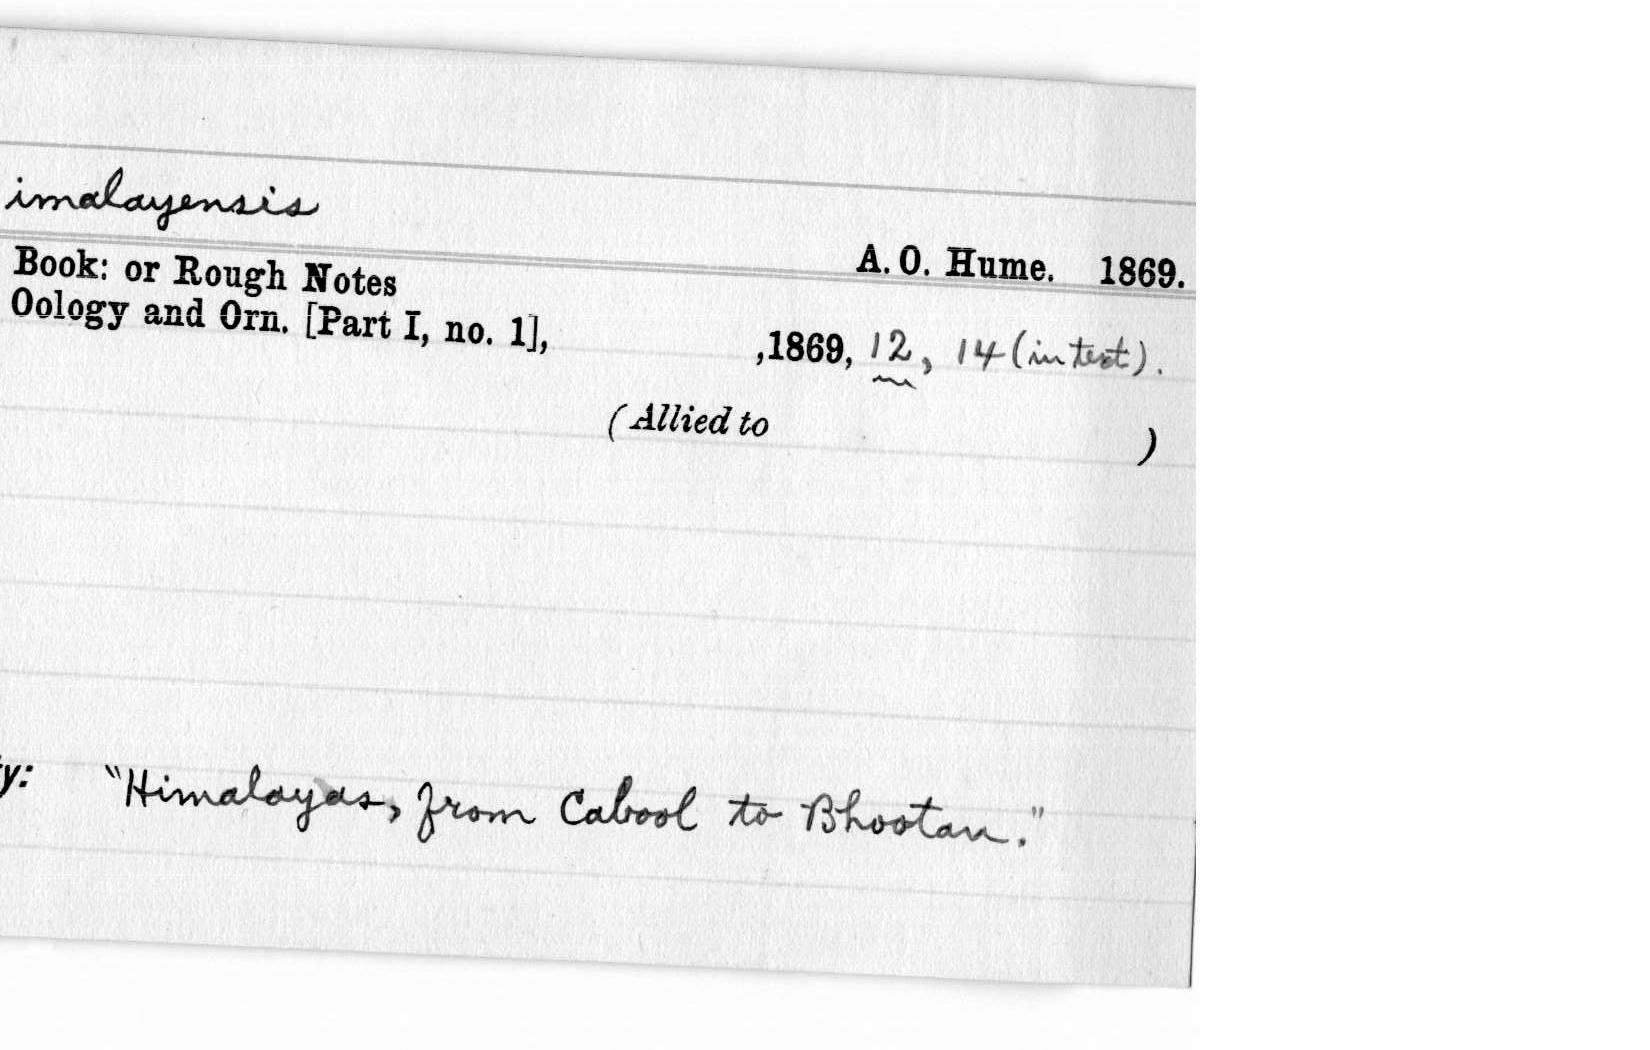 imalayensis
A. O. Hume. 1869.
Book: or Rough Notes
Oology and Orn. [Part I, no. 1],
,1869, 12, 14 (in text).
(Allied to )
y: "Himalayas, from Cabool to Bhootan."